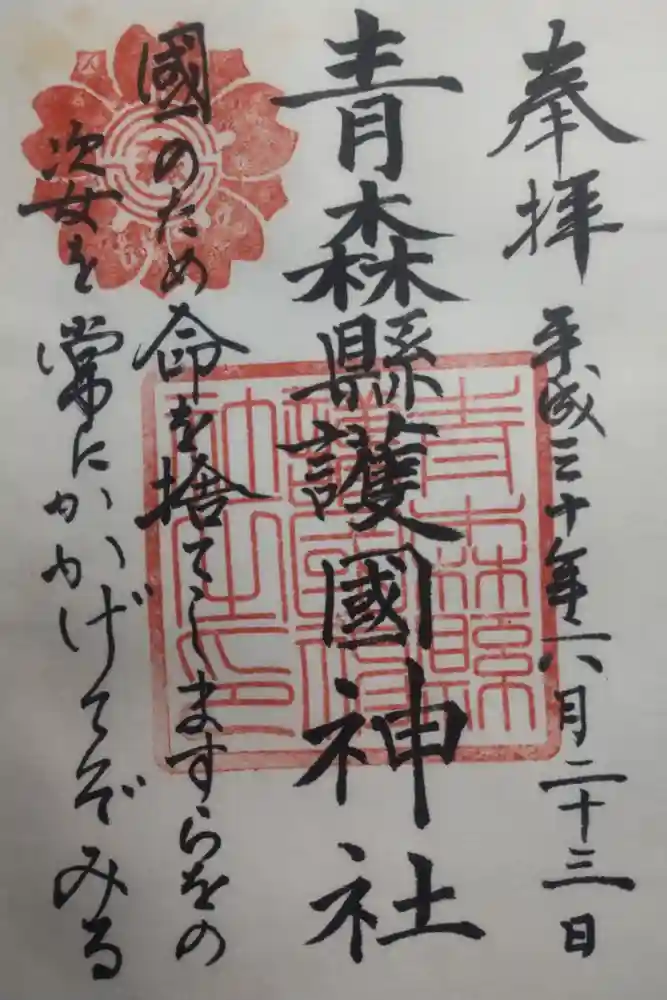 奉拝
平成三十年六月二十三日
青森縣護國神社
國のため命を捨てしますらをの
常にかかげてぞみる
青森縣護國神社之印